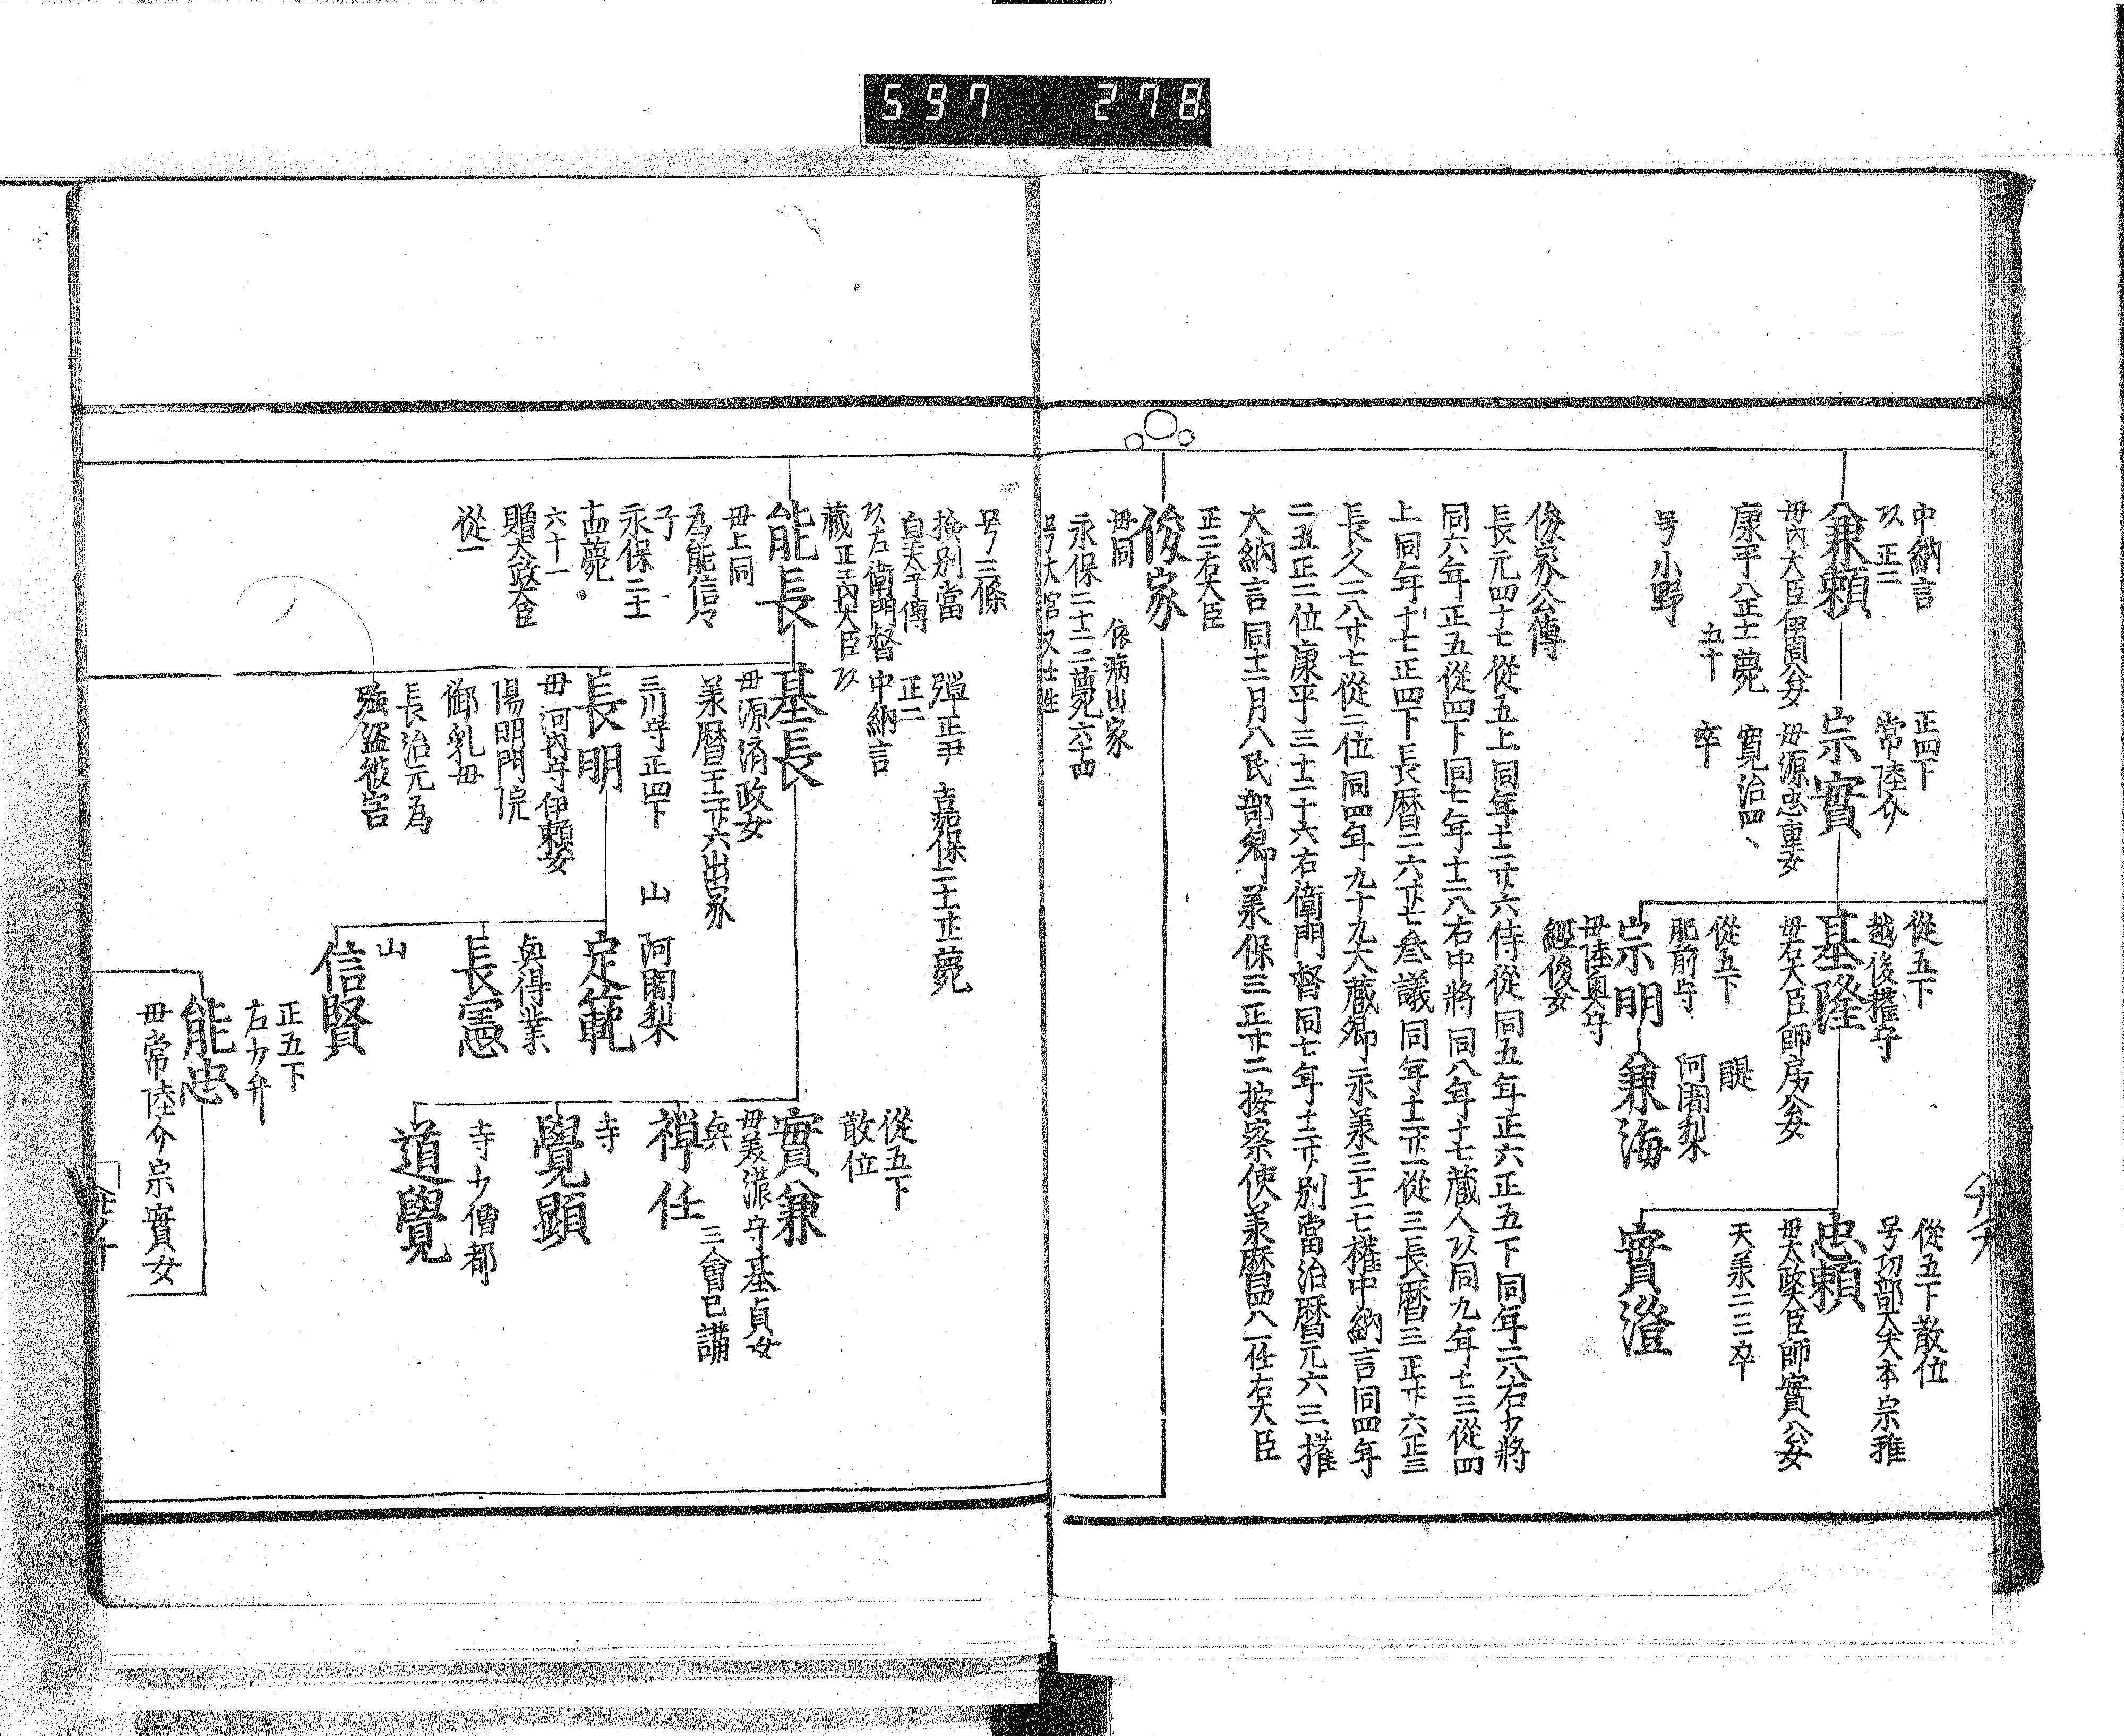 597 278
中納言
正二
兼頼
母内大臣伊周公女
康平八正十一薨
五十
号小野
正四下
常陸介
宗實
母源忠重女
寛治四、
卒
從五下
越後權守
基隆
母右大臣師房公女
從五下
肥前守
宗明
母陸奥守
經俊女
醍
阿闍梨
兼海
從五下散位
号刃部大夫本宗雅
忠頼
母太政大臣師實公女
天羕二三卒
實澄
俊家公傳
長元四十七從五上同年十二廿六侍從同五年正六正五下同年二八右少將
同六年正五從四下同七年十二八右中將同八年十七蔵人以同九年七三從四
上同年十七正四下長暦二六廿七叅議同年十二廿一從三長暦三正廿六正三
長久二八廿七從二位同四年九十九大蔵卿永羕三十二七權中納言同四年
二五正二位康平三十二十六右衛門督同七年十二廿別當治暦元六三權
大納言同十二月八民部卿羕保三正廿二按察使羕暦四八一任右大臣
正二右大臣
俊家
母同
依病出家
永保二十二二薨六十四
号三條
撿別當
皇太子傅
左衛門督
蔵正二内大臣
能長
母上同
為能信々
子
永保二十一
十四薨
六十一
贈太政大臣
從一
彈正尹 嘉保二十一廿一薨
正二
中納言
基長
母源済政女
羕暦五二廿六出家
三川守正四下
長明
母河内守伊頼女
陽明門院
御乳母
長治元為
強盗被害
山
阿闍梨
定範
奥得業
長憲
山
信賢
從五下
散位
實兼
母美濃守基貞女
奥
三會已講
禅任
寺
覺顕
寺少僧都
道覺
正五下
左少弁
能忠
母常陸介宗實女